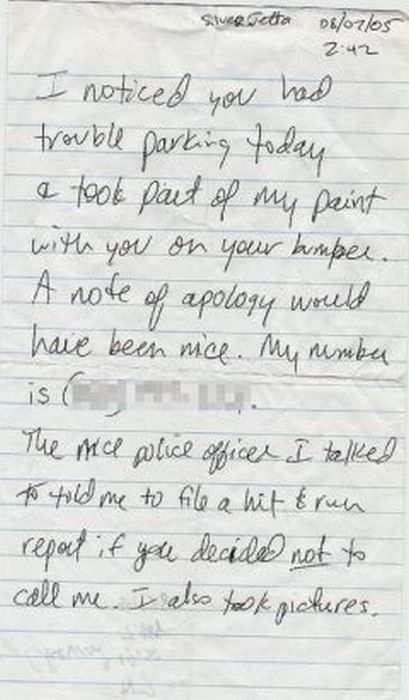 Silver Jetta 08/02/05
2:42
I noticed you had
trouble parking today
& took part of my paint
with you on your bumper.
A note of apology would
have been nice. My number
is (
The nice police officer I talked
to told me to file a hit & run
report if you decided not to
call me. I also took pictures.